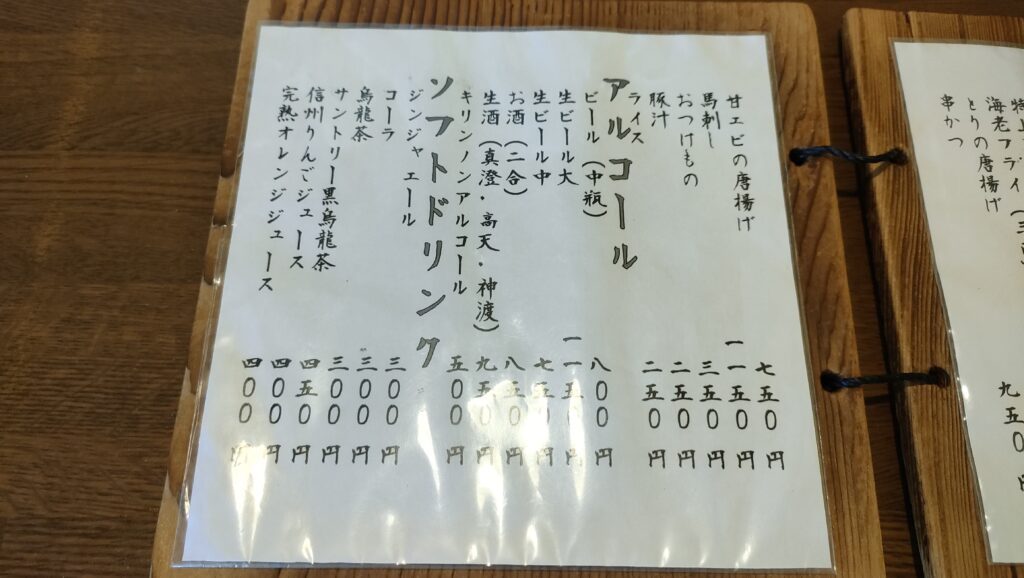 海老フライ(三
とりの唐揚げ
串かつ 九五〇円
甘エビの唐揚げ 七五〇円
馬刺し 一一五〇円
おつけもの 三五〇円
豚汁 二五〇円
ライス 二五〇円
アルコール
ビール(中瓶) 八〇〇円
生ビール大 一一五〇円
生ビール中 七五〇円
お酒(二合) 八五〇円
生酒(真澄・高天・神渡) 九五〇円
キリンノンアルコール 五〇〇円
ソフトドリンク
ジンジャエール 三〇〇円
コーラ 三〇〇円
烏龍茶 三〇〇円
サントリー黒烏龍茶 四五〇円
信州りんごジュース 四〇〇円
完熟オレンジジュース 四〇〇円